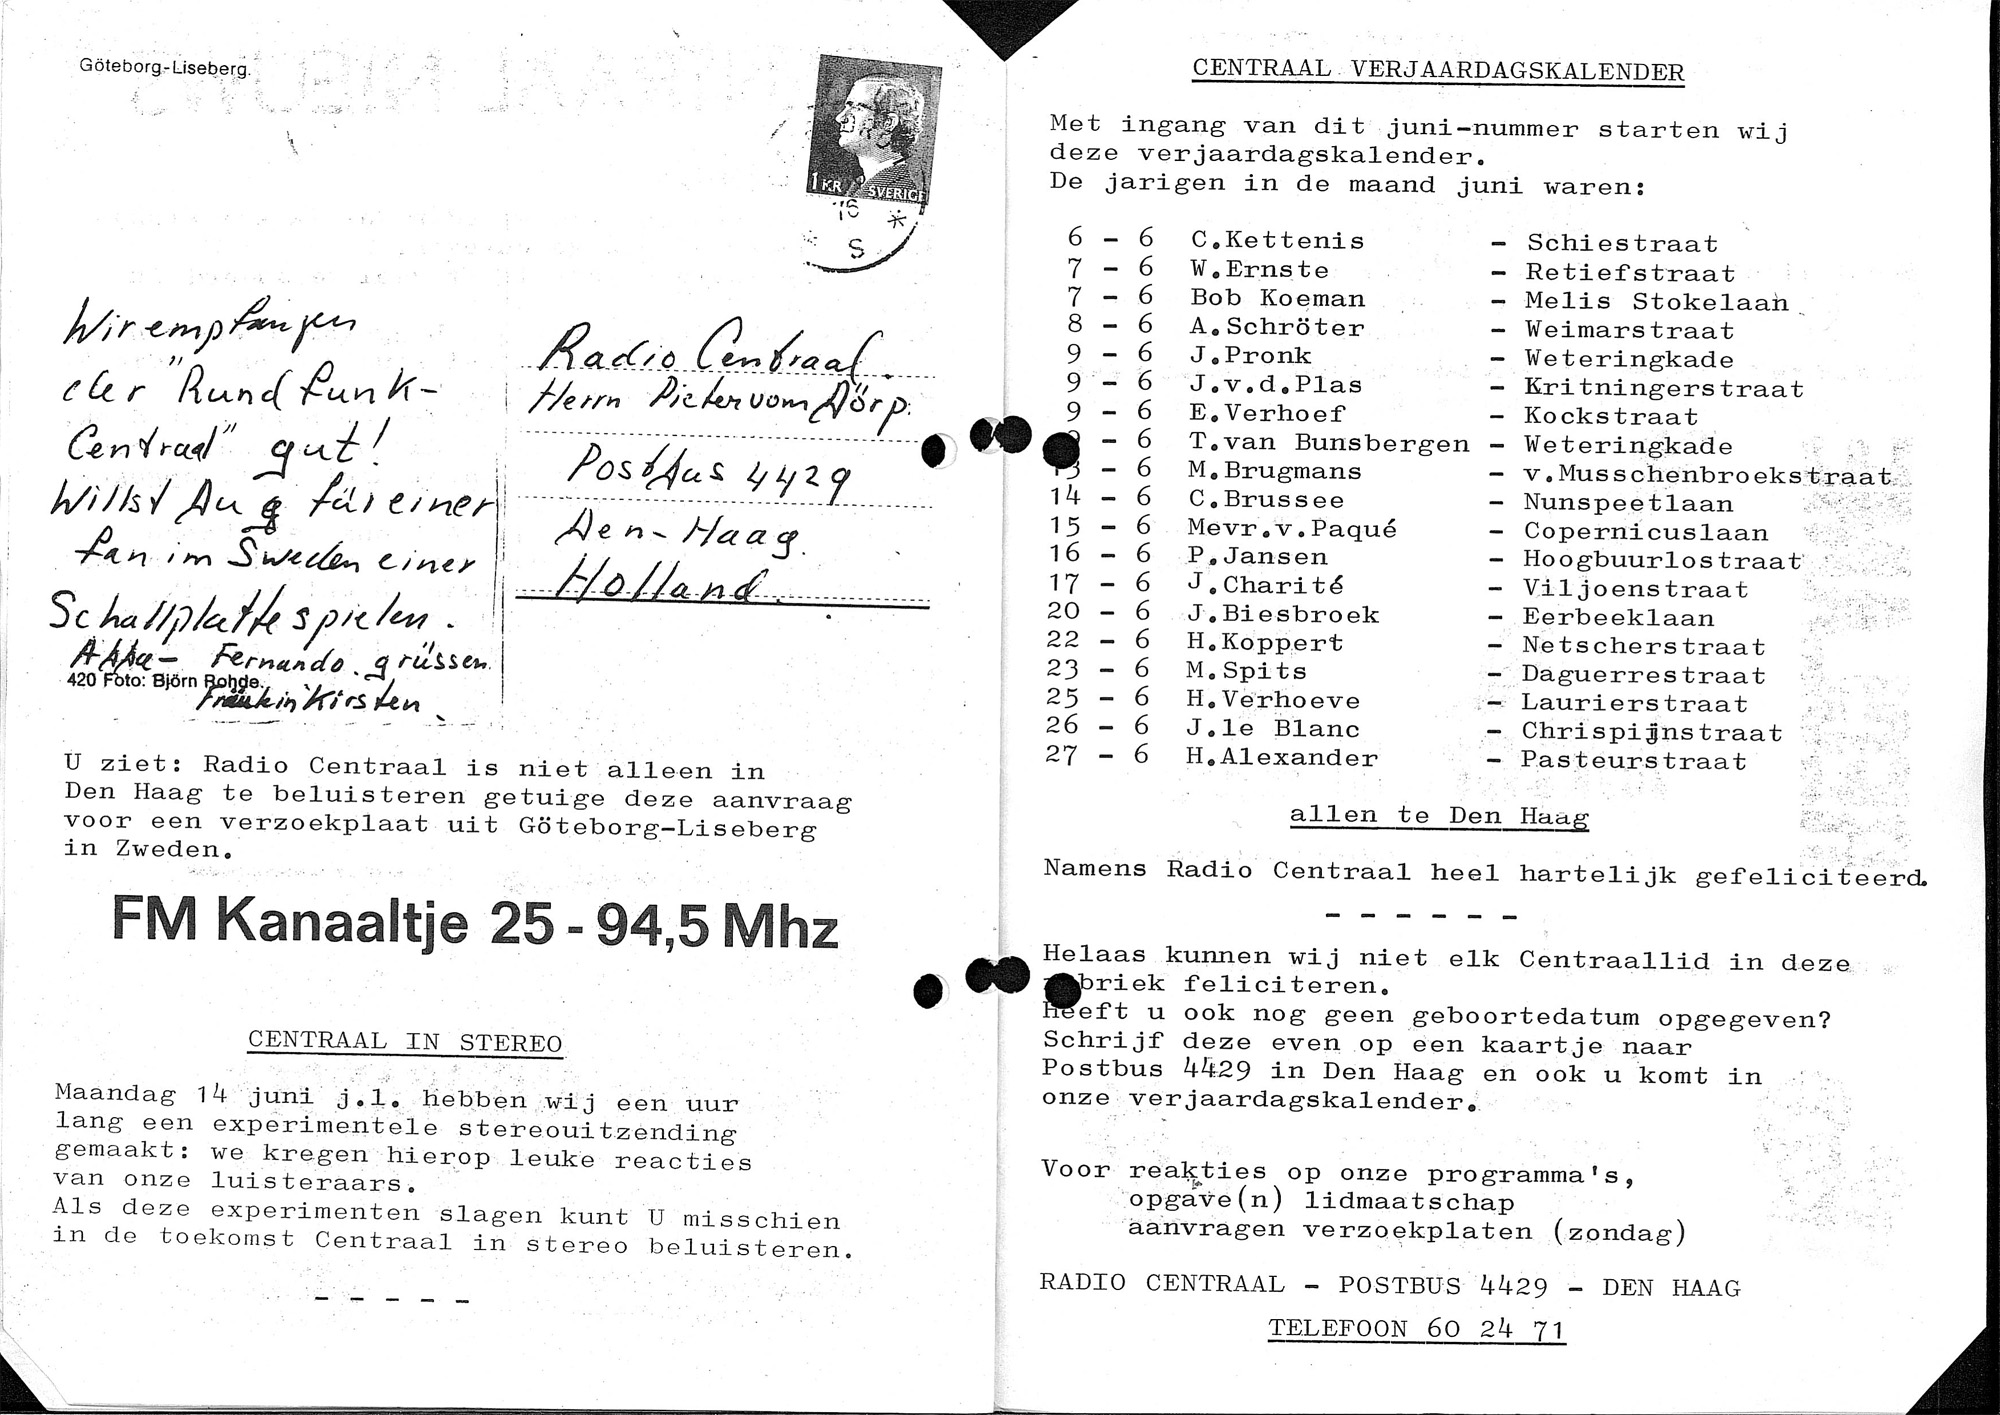 Göteborg-Liseberg.
1 KR SVERIGE
76
S
Wir empfangen
der "Rundfunk-
Centraal" gut!
Willst Du für einer
fan im Sweden einer
Schallplatte spielen.
Fernando. grüssen
420 Foto: Björn Rohde.
Kirsten.
Radio Centraal.
Herrn Pieter vom Dörp.
Postbus 4429
Den-Haag.
Holland.
U ziet: Radio Centraal is niet alleen in
Den Haag te beluisteren getuige deze aanvraag
voor een verzoekplaat uit Göteborg-Liseberg
in Zweden.
FM Kanaaltje 25 - 94,5 Mhz
CENTRAAL IN STEREO
Maandag 14 juni j.l. hebben wij een uur
lang een experimentele stereouitzending
gemaakt: we kregen hierop leuke reacties
van onze luisteraars.
Als deze experimenten slagen kunt U misschien
in de toekomst Centraal in stereo beluisteren.
- - - - -
CENTRAAL VERJAARDAGSKALENDER
Met ingang van dit juni-nummer starten wij
deze verjaardagskalender.
De jarigen in de maand juni waren:
6 - 6 C.Kettenis - Schiestraat
7 - 6 W.Ernste - Retiefstraat
7 - 6 Bob Koeman - Melis Stokelaan
8 - 6 A.Schröter - Weimarstraat
9 - 6 J.Pronk - Weteringkade
9 - 6 J.v.d.Plas - Kritningerstraat
9 - 6 E.Verhoef - Kockstraat
- 6 T.van Bunsbergen - Weteringkade
13 - 6 M.Brugmans - v.Musschenbroekstraat
14 - 6 C.Brussee - Nunspeetlaan
15 - 6 Mevr.v.Paqué - Copernicuslaan
16 - 6 P.Jansen - Hoogbuurlostraat
17 - 6 J.Charité - Viljoenstraat
20 - 6 J.Biesbroek - Eerbeeklaan
22 - 6 H.Koppert - Netscherstraat
23 - 6 M.Spits - Daguerrestraat
25 - 6 H.Verhoeve - Laurierstraat
26 - 6 J.le Blanc - Chrispijnstraat
27 - 6 H.Alexander - Pasteurstraat
allen te Den Haag
Namens Radio Centraal heel hartelijk gefeliciteerd.
- - - - - -
Helaas kunnen wij niet elk Centraallid in deze
rubriek feliciteren.
Heeft u ook nog geen geboortedatum opgegeven?
Schrijf deze even op een kaartje naar
Postbus 4429 in Den Haag en ook u komt in
onze verjaardagskalender.
Voor reakties op onze programma's,
opgave(n) lidmaatschap
aanvragen verzoekplaten (zondag)
RADIO CENTRAAL - POSTBUS 4429 - DEN HAAG
TELEFOON 60 24 71